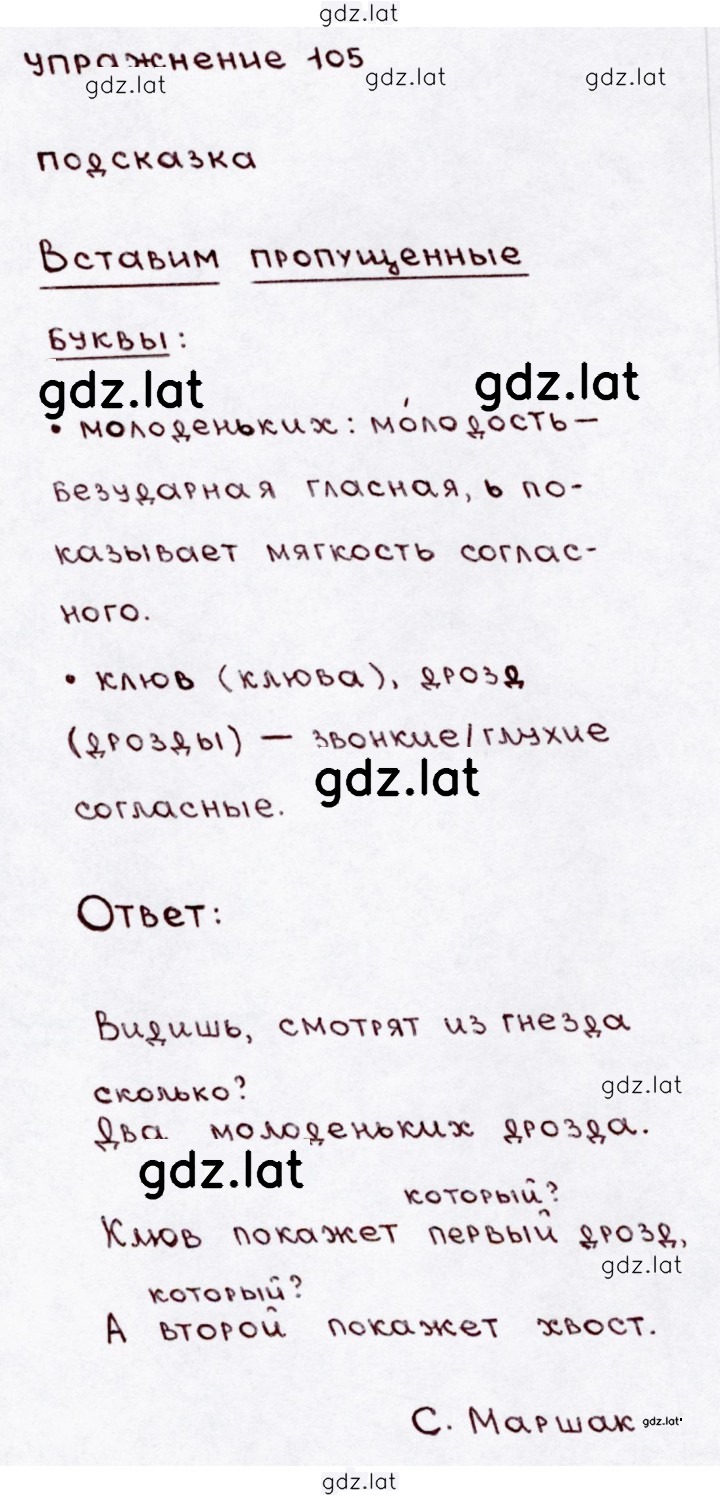 gdz.lat
упражнение 105
gdz.lat gdz.lat gdz.lat
подсказка
Вставим пропущенные
буквы:
gdz.lat gdz.lat
• молоденьких: мо́лодость –
безударная гласная, ь по-
казывает мягкость соглас-
ного.
• клюв (клюва), дрозд
(дрозды) – звонкие/глухие
gdz.lat
согласные.
Ответ:
Видишь, смотрят из гнезда
сколько?
gdz.lat
Два молоденьких дрозда.
gdz.lat
который?
Клюв покажет первый дрозд,
gdz.lat
который?
А второй покажет хвост.
С. Маршак gdz.lat
gdz.lat